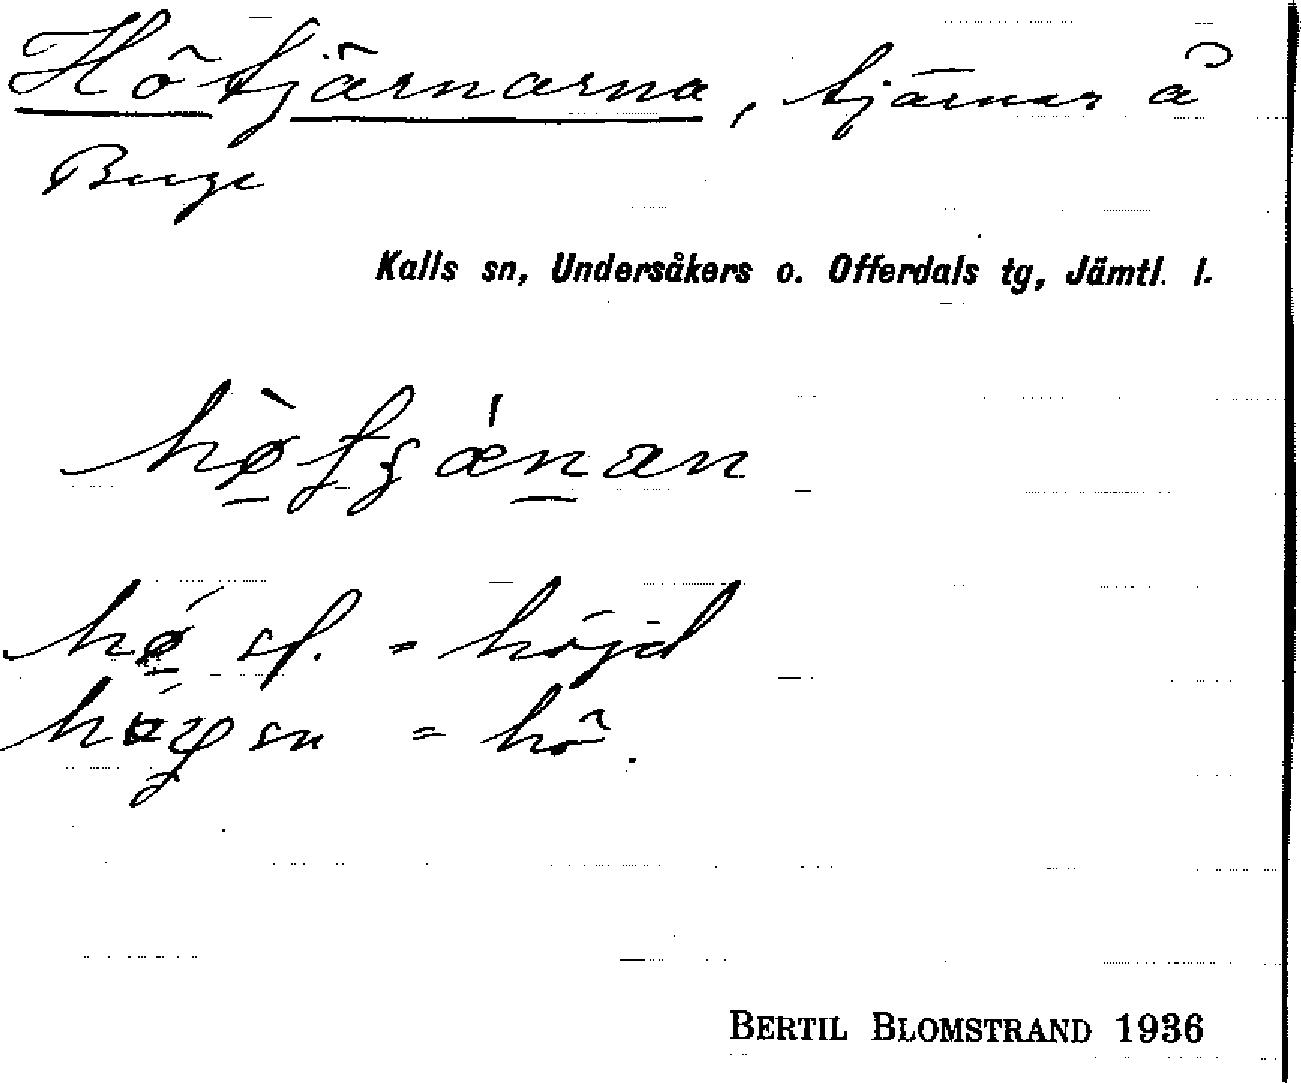 Hötjärnarna, tjärnar å
Berge
Kalls sn, Undersåkers o. Offerdals tg, Jämtl. l.
sf. = höjd
sn = hö.
BERTIL BLOMSTRAND 1936